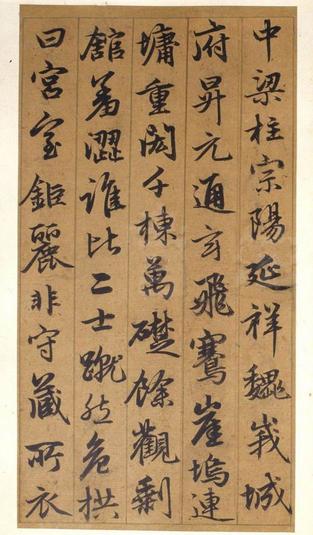 中梁柱宗陽延祥魏峩城
府昇元通玄飛騫崖塢連
墉重閎千棟萬礎餘觀剩
舘羞澀誰比二士蹴然危拱
曰宮室鉅麗非守藏所衣